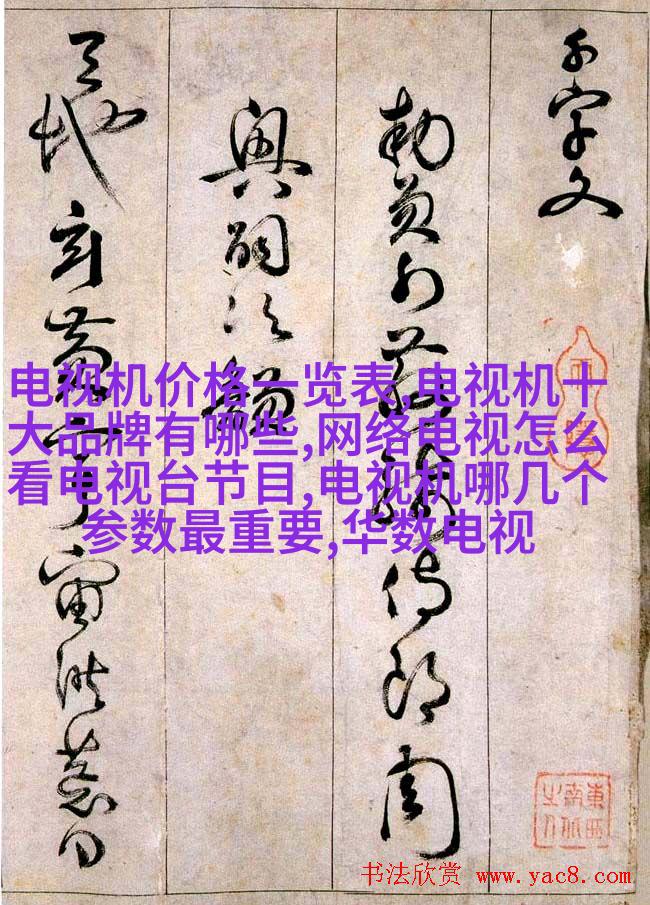 千字文
勅員外散騎侍郎周
興嗣次韻
天地玄黃宇宙洪荒日
电视机价格一览表,电视机十
大品牌有哪些,网络电视怎么
看电视台节目,电视机哪几个
参数最重要,华数电视
東西南北之人
书法欣赏 www.yac8.com